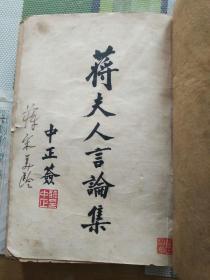 蔣夫人言論集
中正簽
蔣宋美齡